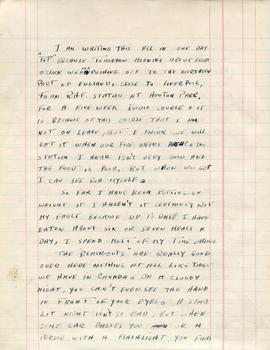 I AM WRITING THIS ALL IN ONE DAY
"TOP" BECAUSE TOMORROW MORNING ABOUT EIGHT
OCLOCK WE ARE PUSHING OFF TO THE NORTHERN
PART OF ENGLAND, CLOSE TO LIVERPOOL,
TO AN R.A.F. STATION AT HOOTON PARK,
FOR A FIVE WEEK RADIO COURSE & IT
IS BECAUSE OF THIS COURSE THAT I AM
NOT ON LEAVE, BUT I THINK WE WILL
GET IT WHEN OUR FIVE WEEKS
STATION I HEAR ISN'T VERY GOOD AND
THE FOOD IS POOR, BUT WHEN WE GET
I CAN SEE FOR MYSELF.
SO FAR I HAVE BEEN PUTTING ON
WEIGHT IF I HAVEN'T IT CERTAINLY NOT
MY FAULT, BECAUSE UP TO DATE I HAVE
EATEN ABOUT SIX OR SEVEN MEALS A
DAY, I SPEND MOST OF MY TIME EATING
THE BLACKOUTS ARE REALLY GOOD
OVER HERE NOTHING AT ALL LIKE THAT
WE HAVE IN CANADA. ON A CLOUDY
NIGHT, YOU CAN'T EVEN SEE THE HAND
IN FRONT OF YOUR EYES. A STAR
LIT NIGHT ISN'T SO BAD, BUT WHEN
SOME CAR PASSES YOU OR A
PERSON WITH A FLASHLIGHT, YOU FIND